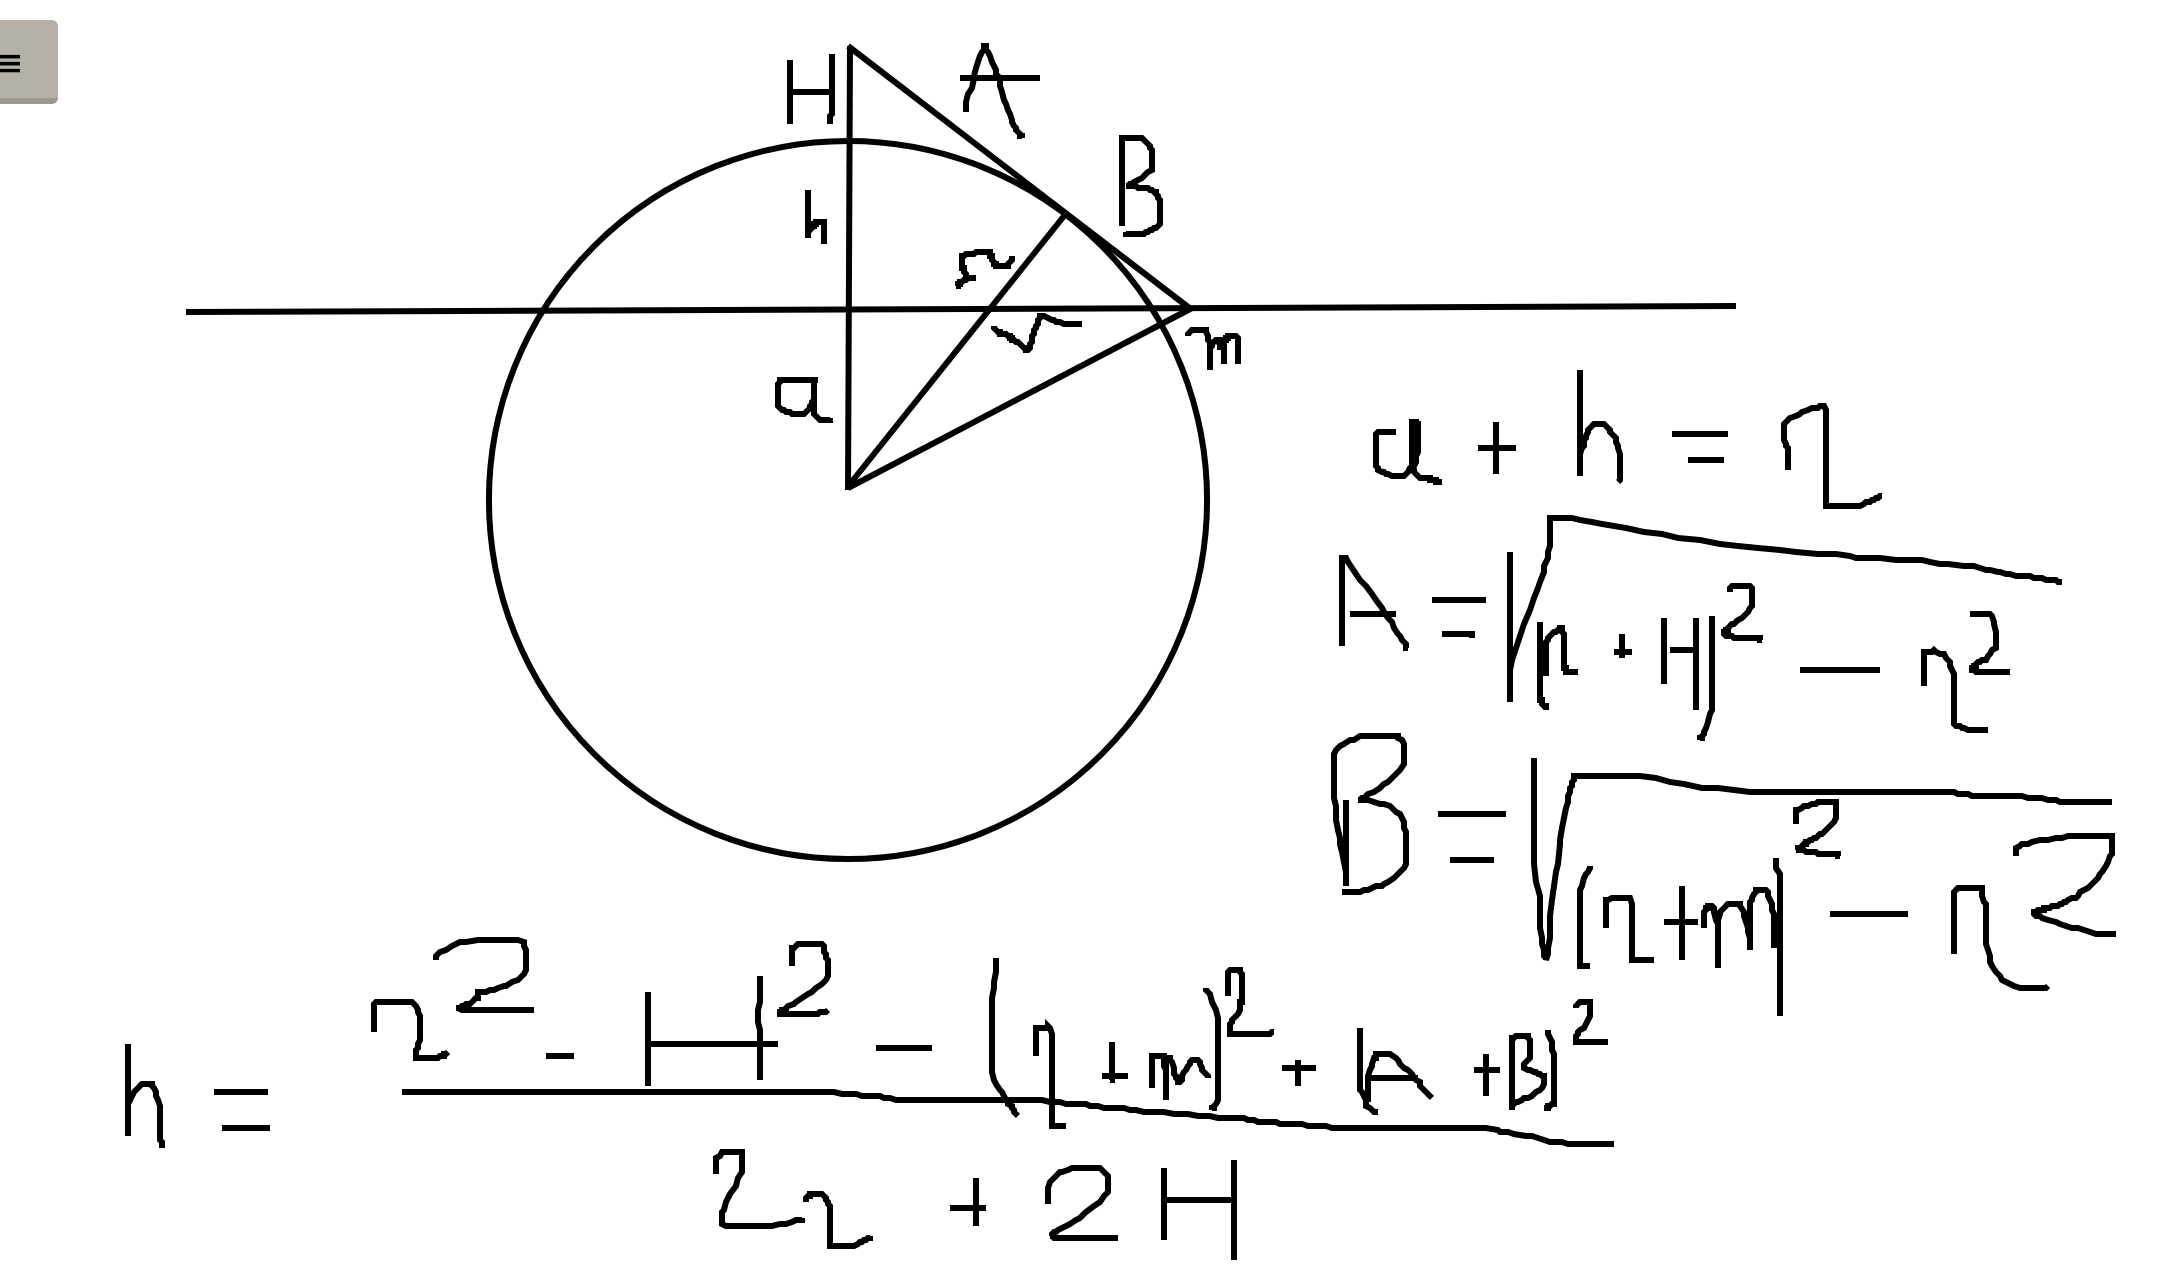 H
A
B
h
r
r
m
a
a + h = r
A = √(r + H)² − r²
B = √(r + m)² − r²
h = r² − H² − (r + m)² + (A + B)² / 2r + 2H